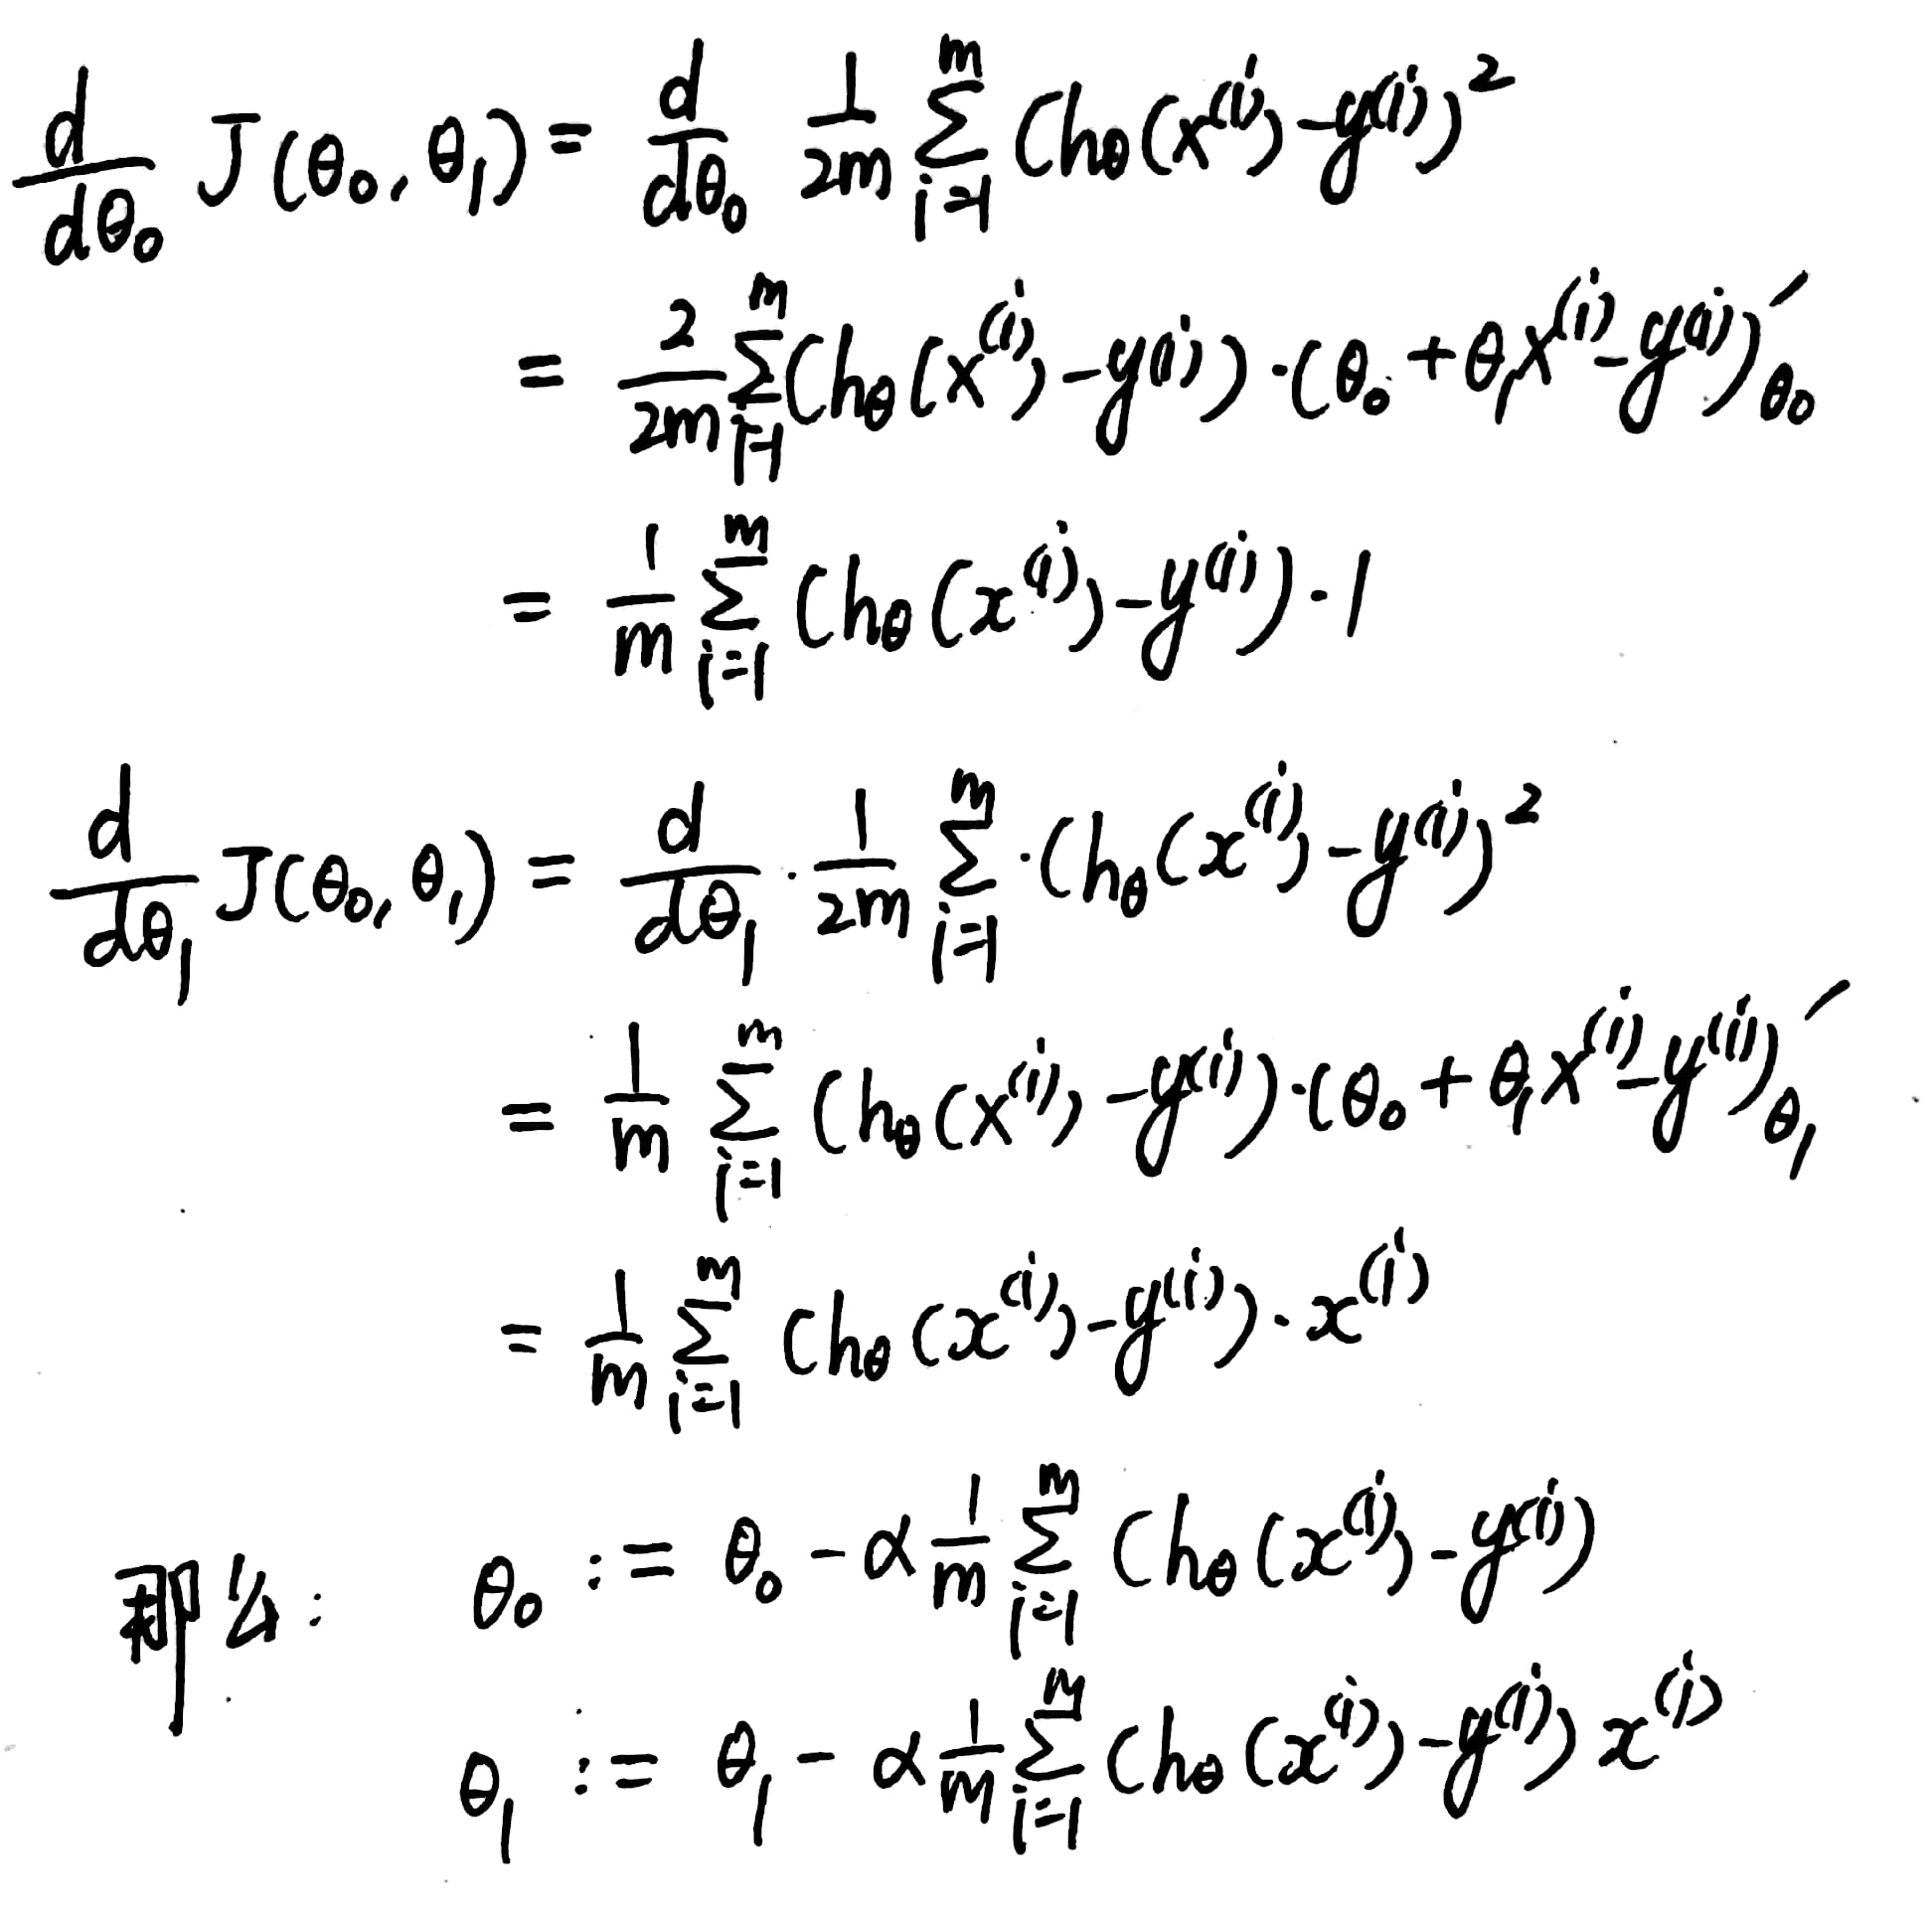 d/dθ₀ J(θ₀, θ₁) = d/dθ₀ 1/2m ∑ᵢ₌₁ᵐ (hθ(x⁽ⁱ⁾) - y⁽ⁱ⁾)²
= 2/2m ∑ᵢ₌₁ᵐ (hθ(x⁽ⁱ⁾) - y⁽ⁱ⁾) · (θ₀ + θ₁x⁽ⁱ⁾ - y⁽ⁱ⁾)′θ₀
= 1/m ∑ᵢ₌₁ᵐ (hθ(x⁽ⁱ⁾) - y⁽ⁱ⁾) · 1
d/dθ₁ J(θ₀, θ₁) = d/dθ₁ · 1/2m ∑ᵢ₌₁ᵐ · (hθ(x⁽ⁱ⁾) - y⁽ⁱ⁾)²
= 1/m ∑ᵢ₌₁ᵐ (hθ(x⁽ⁱ⁾) - y⁽ⁱ⁾) · (θ₀ + θ₁x⁽ⁱ⁾ - y⁽ⁱ⁾)′θ₁
= 1/m ∑ᵢ₌₁ᵐ (hθ(x⁽ⁱ⁾) - y⁽ⁱ⁾) · x⁽ⁱ⁾
那么: θ₀ := θ₀ - α 1/m ∑ᵢ₌₁ᵐ (hθ(x⁽ⁱ⁾) - y⁽ⁱ⁾)
θ₁ := θ₁ - α 1/m ∑ᵢ₌₁ᵐ (hθ(x⁽ⁱ⁾) - y⁽ⁱ⁾) x⁽ⁱ⁾